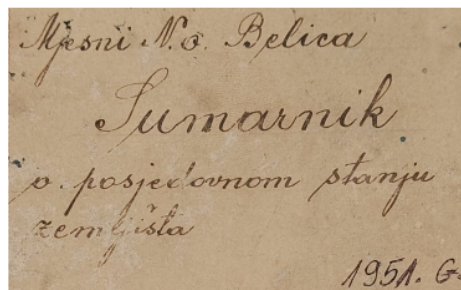 Mjesni N.o. Belica
Sumarnik
o posjedovnom stanju
zemljišta
1951. G.